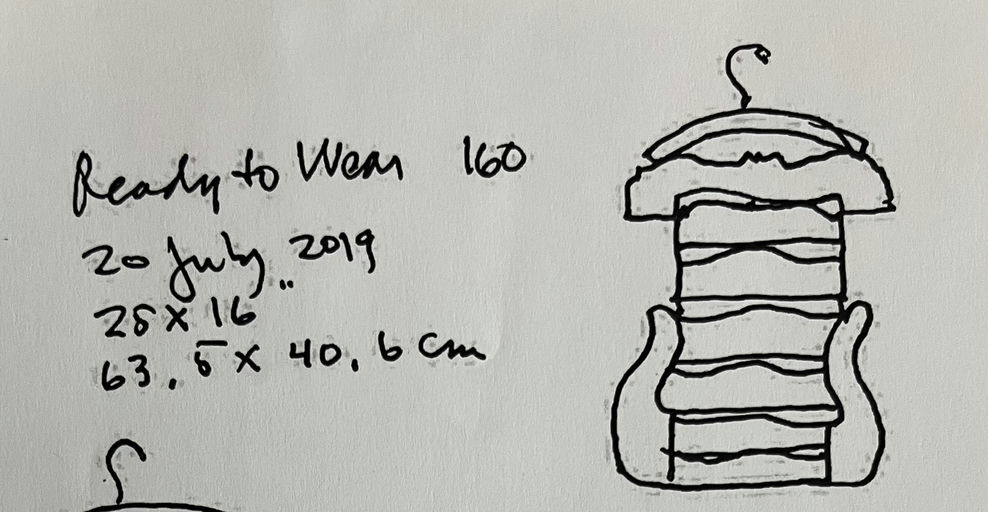 Ready to Wear 160
20 July 2019
25 x 16"
63.5 x 40.6 cm